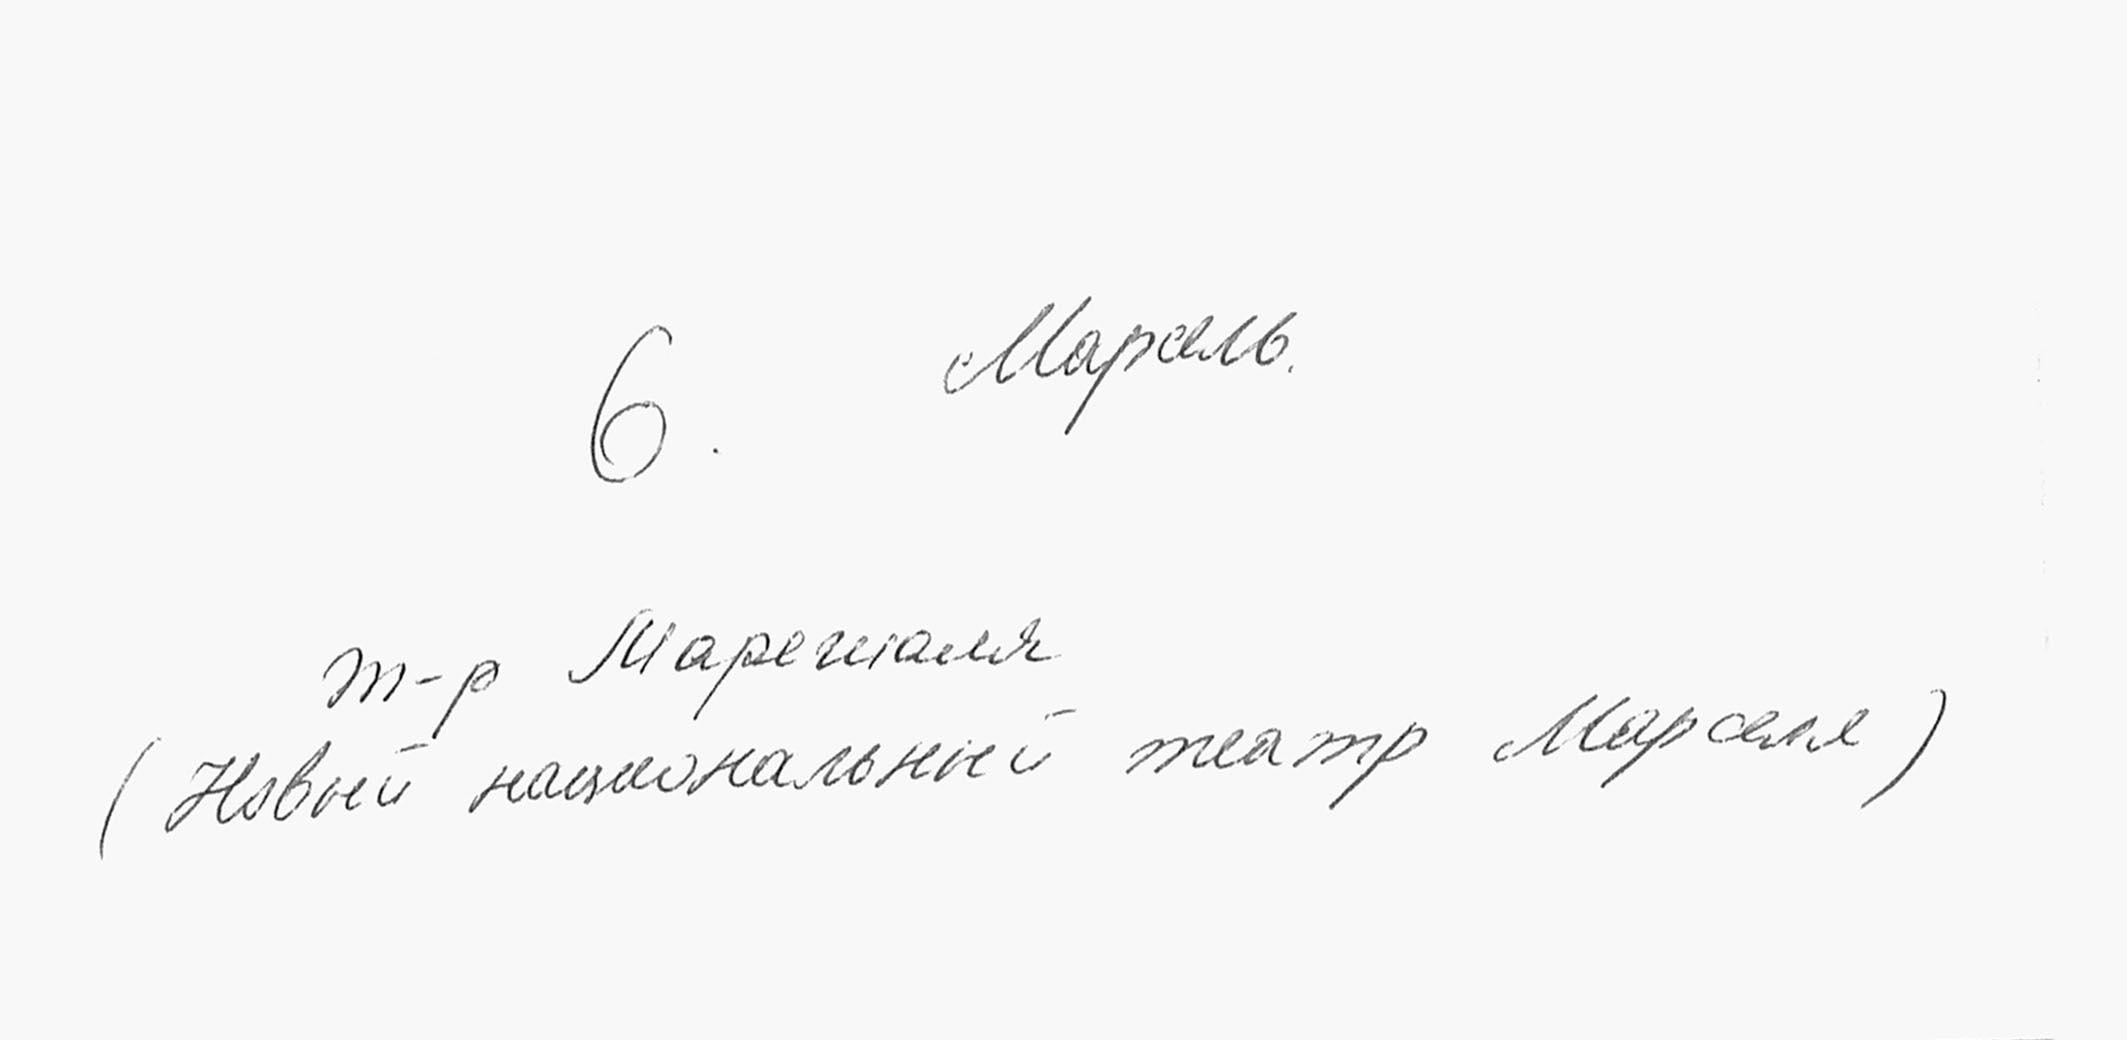 6. Марсель.
т-р Марешаля
(Новый национальный театр Марселя)